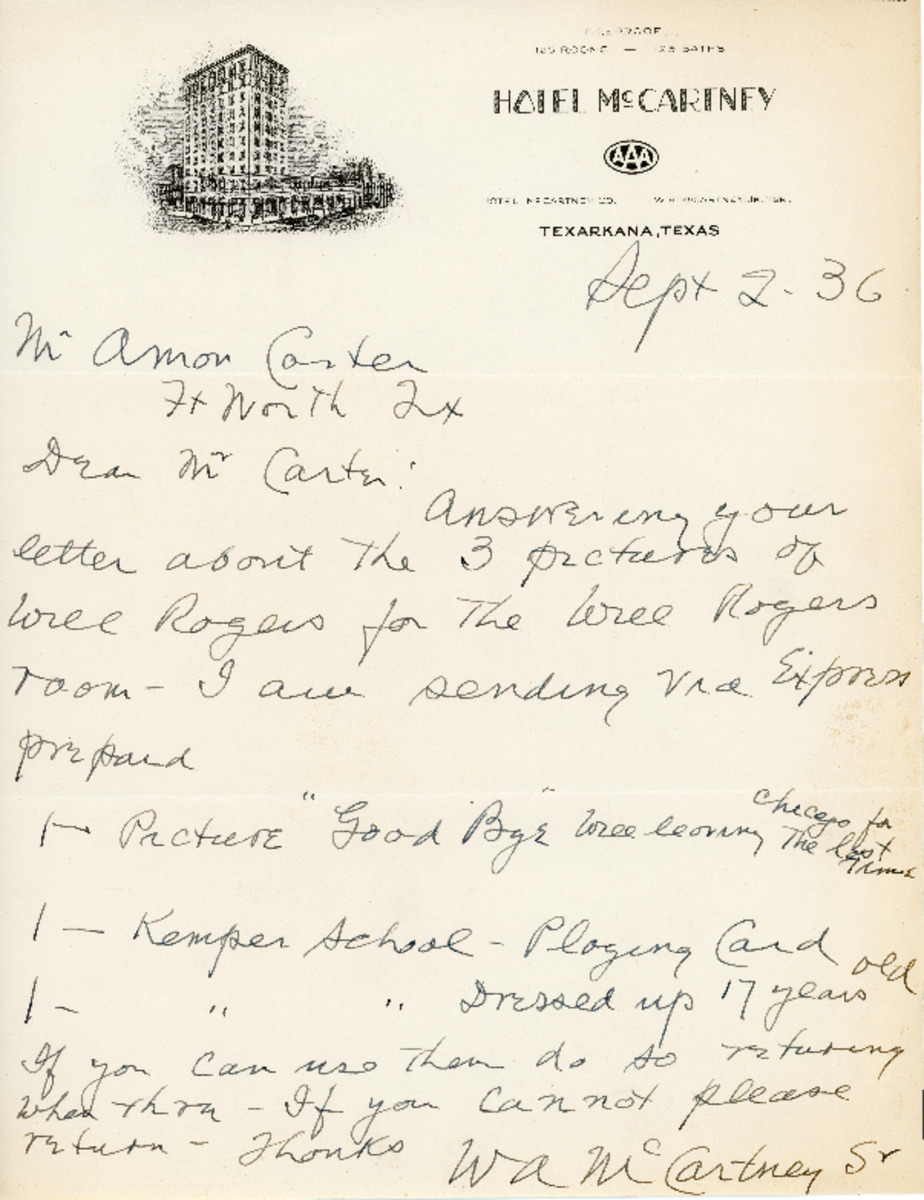 FIREPROOF
125 ROOMS — 125 BATHS
HOTEL McCARTNEY
AAA
HOTEL McCARTNEY CO.
TEXARKANA, TEXAS
Sept 2 - 36
Mr Amon Carter
Ft Worth Tx
Dear Mr Carter:
Answering your
letter about the 3 pictures of
Will Rogers for the Will Rogers
room - I am sending via Express
prepaid
1 - Picture "Good Bye" Will leaving Chicago for
The last
time
1 — Kemper School - Playing Card
1 - " " Dressed up 17 years old
If you can use them do so returing
when thru - If you cannot please
return - Thanks
W A McCartney Sr